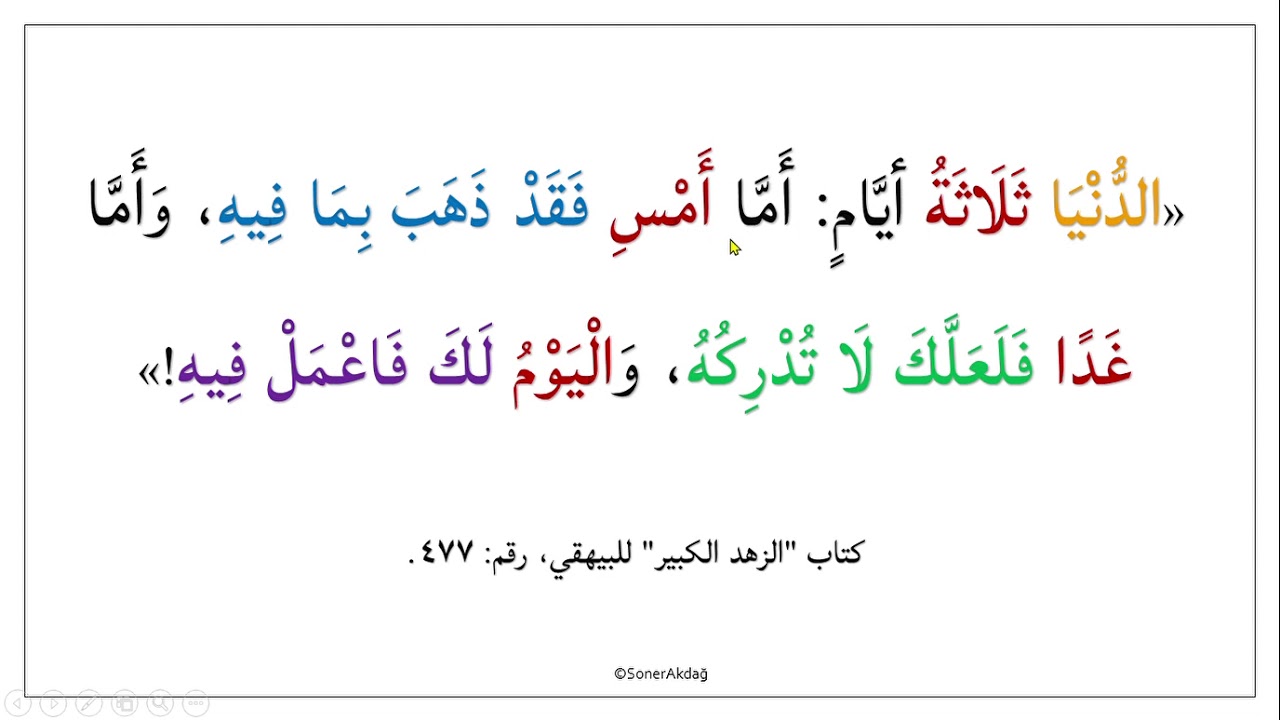 «الدُّنْيَا ثَلَاثَةُ أَيَّامٍ: أَمَّا أَمْسِ فَقَدْ ذَهَبَ بِمَا فِيهِ، وَأَمَّا
غَدًا فَلَعَلَّكَ لَا تُدْرِكُهُ، وَالْيَوْمُ لَكَ فَاعْمَلْ فِيهِ!»
كتاب "الزهد الكبير" للبيهقي، رقم: ٤٧٧.
©SonerAkdağ